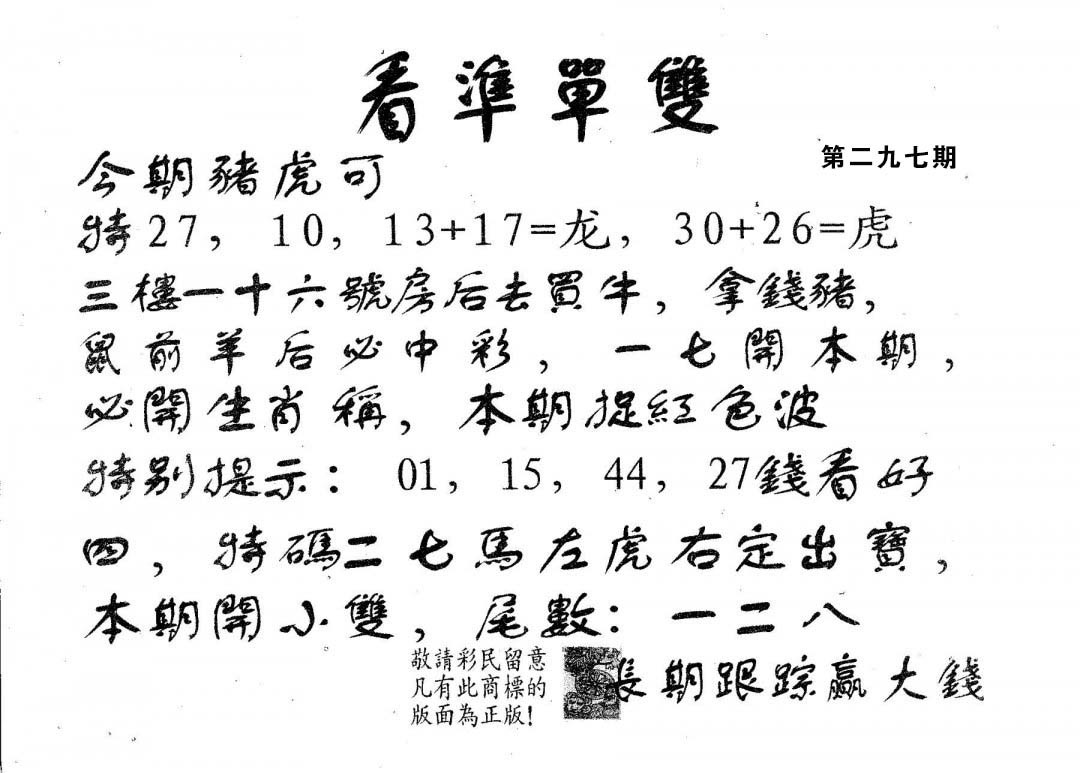 看準單雙
第二九七期
今期豬虎可
特27，10，13+17=龙，30+26=虎
三樓一十六號房后去買牛，拿錢豬，
鼠前羊后必中彩，一七開本期，
必開生肖稱，本期捉紅色波
特别提示：01，15，44，27錢看好
四，特碼二七馬左虎右定出寶，
本期開小雙，尾數：一二八
敬請彩民留意
凡有此商標的
版面為正版！
長期跟踪赢大錢